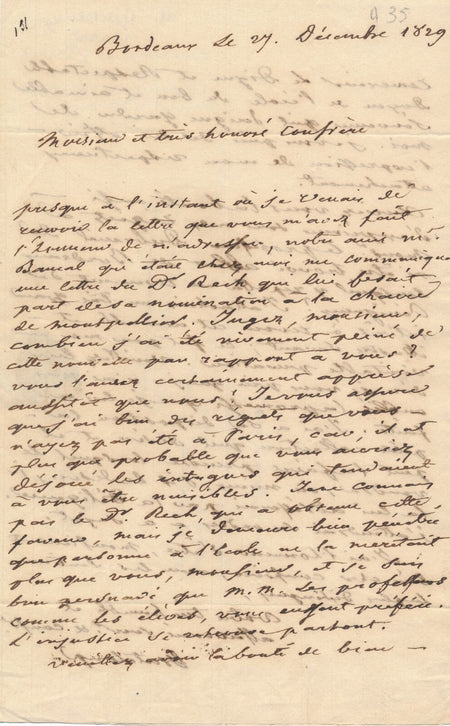 1er
A 35
Bordeaux le 27. Décembre 1829
Monsieur et très honoré Confrère
presque à l'instant où je venais de
recevoir la lettre que vous m'avez fait
l'honneur de m'adresser, notre ami Mr.
Bancal qui était chez moi me communiqua
une lettre du Dr. Rech que lui fesait
part de sa nomination a la chaire
de montpellier. Jugez, monsieur,
combien j'ai été vivement peiné de
cette nouvelle par rapport à vous?
vous l'aurez certainement apprise
aussitôt que nous! Je vous assure
que j'ai bien des regrets que vous
n'ayez pas été à Paris, car, il est
plus que probable que vous auriez
déjoué les intrigues qui tendaient
à vous être nuisibles. Je ne connais
pas le Dr Rech, qui a obtenu cette
faveur, mais je demeure bien pénétré
que personne à l'école ne la méritait
plus que vous, monsieur, et je suis
bien persuadé que M. M. les professeurs
comme les élèves, vous eussent préféré.
L'injustice se retrouve partout.
Veuillez avoir la bonté de bien